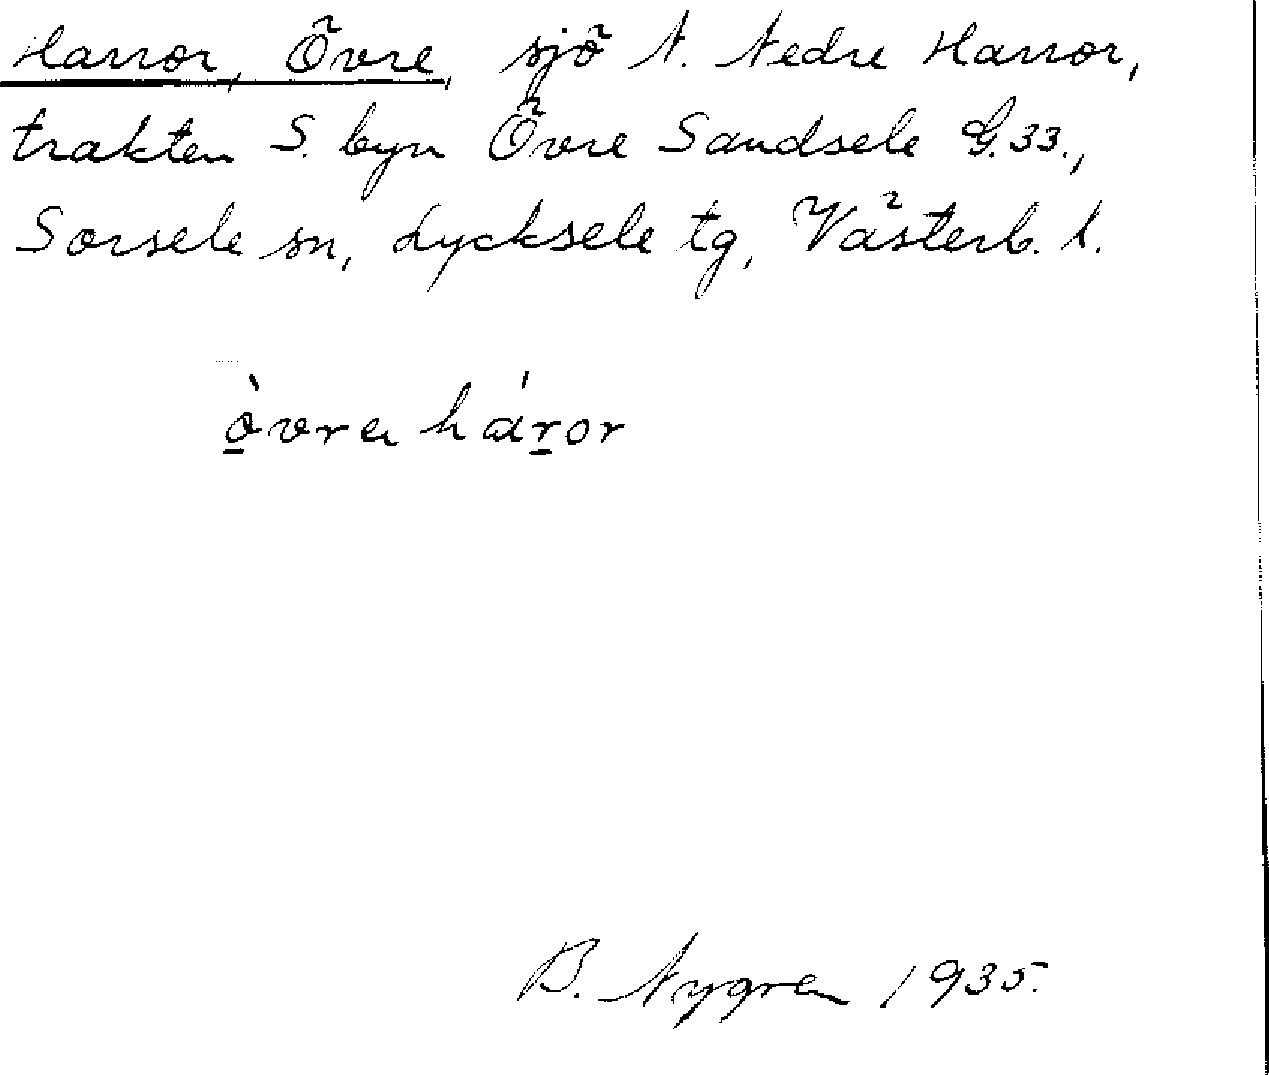 Harror, Övre, sjö N. Nedre Harror,
trakten S. byn Övre Sandsele G.33.,
Sorsele sn, Lycksele tg, Västerb. l.
òvrɐ háror
B. Nygren 1935.